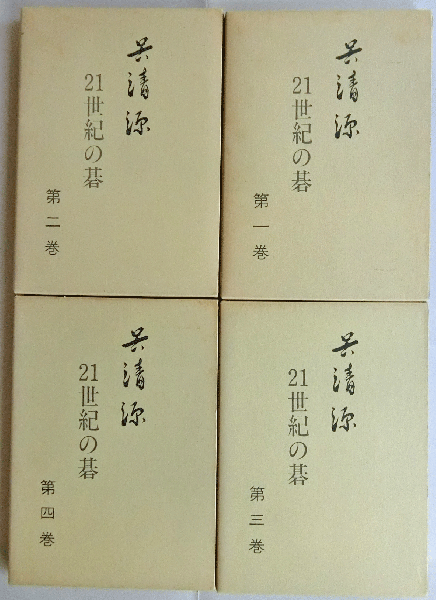 呉清源
21世紀の碁
第一巻
呉清源
21世紀の碁
第二巻
呉清源
21世紀の碁
第三巻
呉清源
21世紀の碁
第四巻